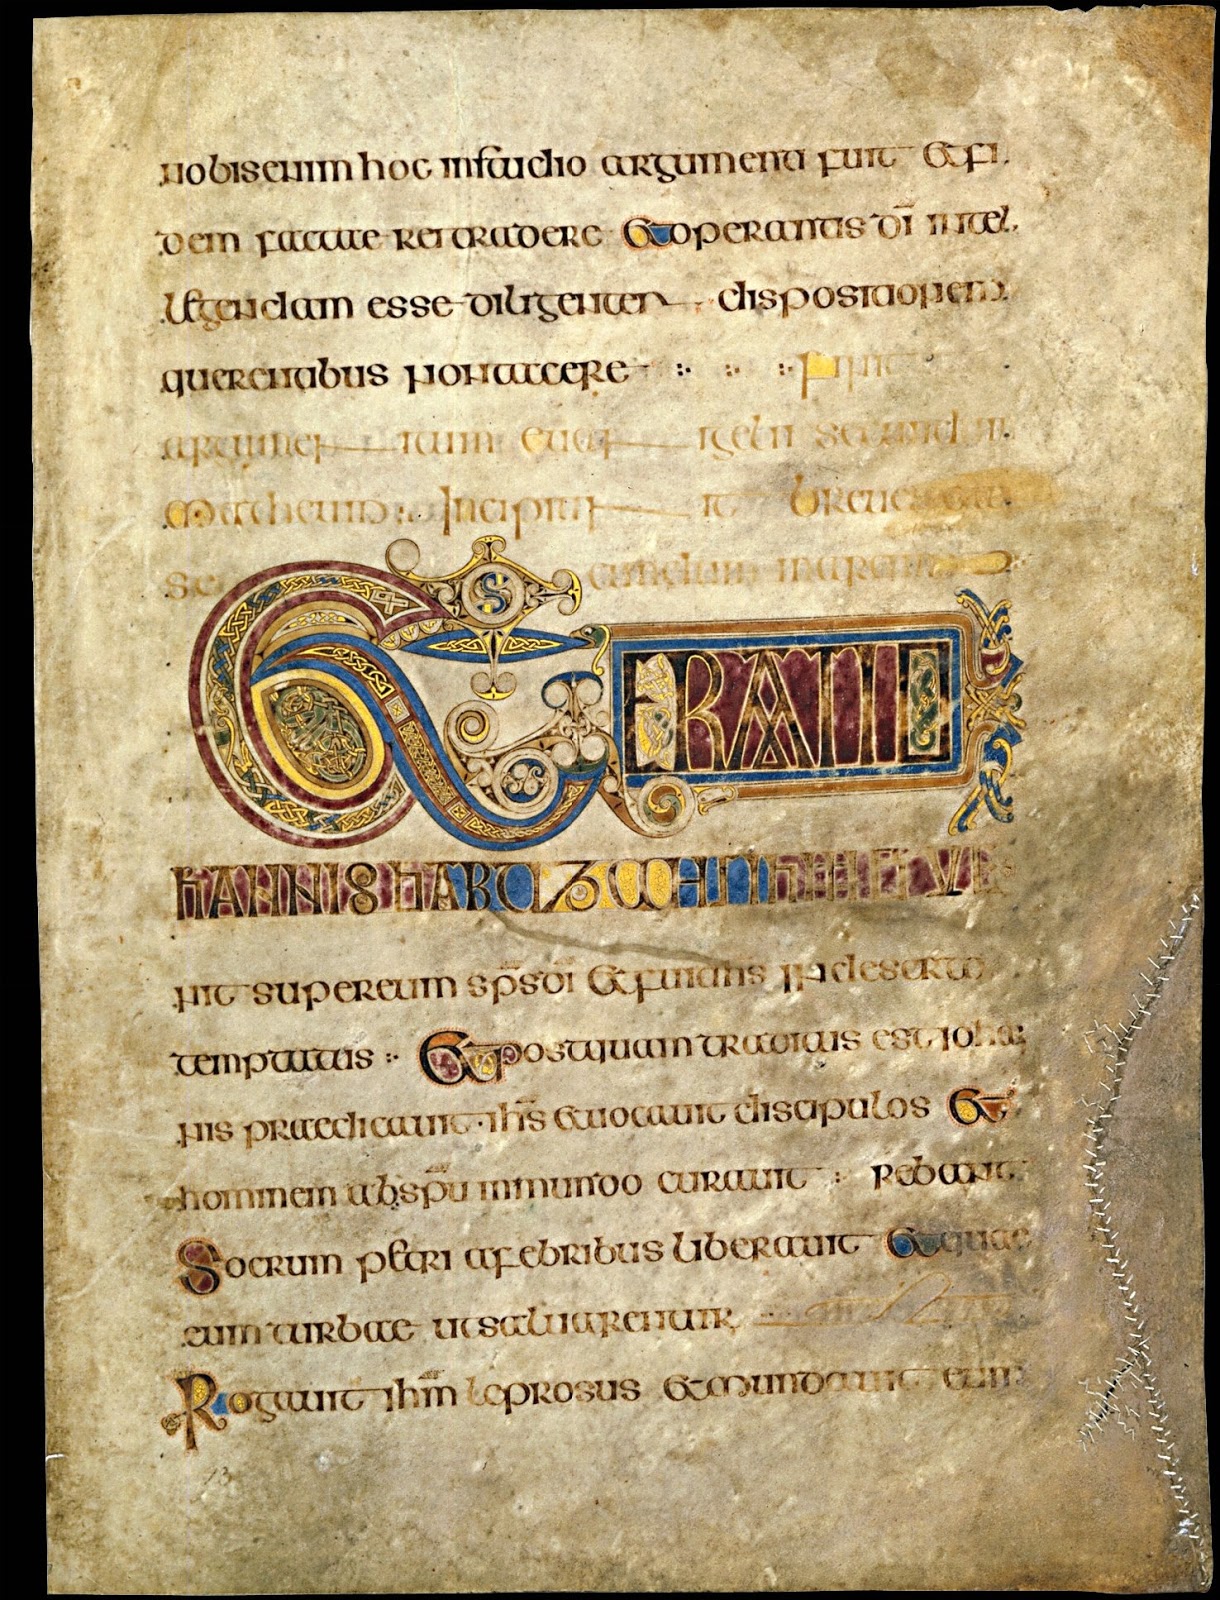 nobis enim hoc in studio argumenti fuit et fi
dem factae rei tradere et operantis dī intel
legendam esse diligenter dispositionem
querentibus non tacere :· :· :· Finit
argumentum euangelii secundum
Matheum :· Incipit breues
secundum marcum
ET ERAT IO
hANNIS UE
nit super eum sp̄s dī et in deserto
temptatus :· Et postquam traditus est
nis praedicauit · ih̄s euocauit discipulos Et
hominem ab sp̄u inmundo curauit :·
Socrum petri a febribus liberauit Et
eum turbae ut saluarentur
Rogauit ih̄m leprosus et mundauit eum
13